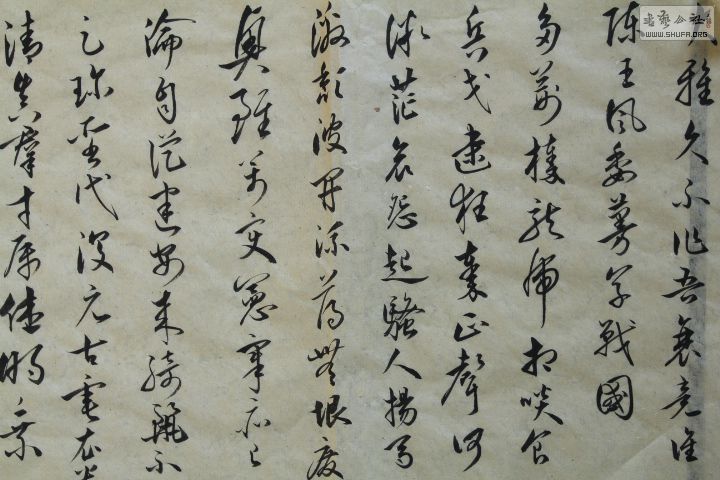 大雅久不作吾衰竟誰
陳王風委蔓草戰國
多荊榛龍虎相啖食
兵戈逮狂秦正聲何
微茫哀怨起騷人揚馬
激頹波開流蕩無垠廢
興雖萬變憲章亦已
淪自從建安來綺麗不
足珍聖代復元古垂衣貴
清真羣才屬休明乘
书艺公社
WWW.SHUFA.ORG